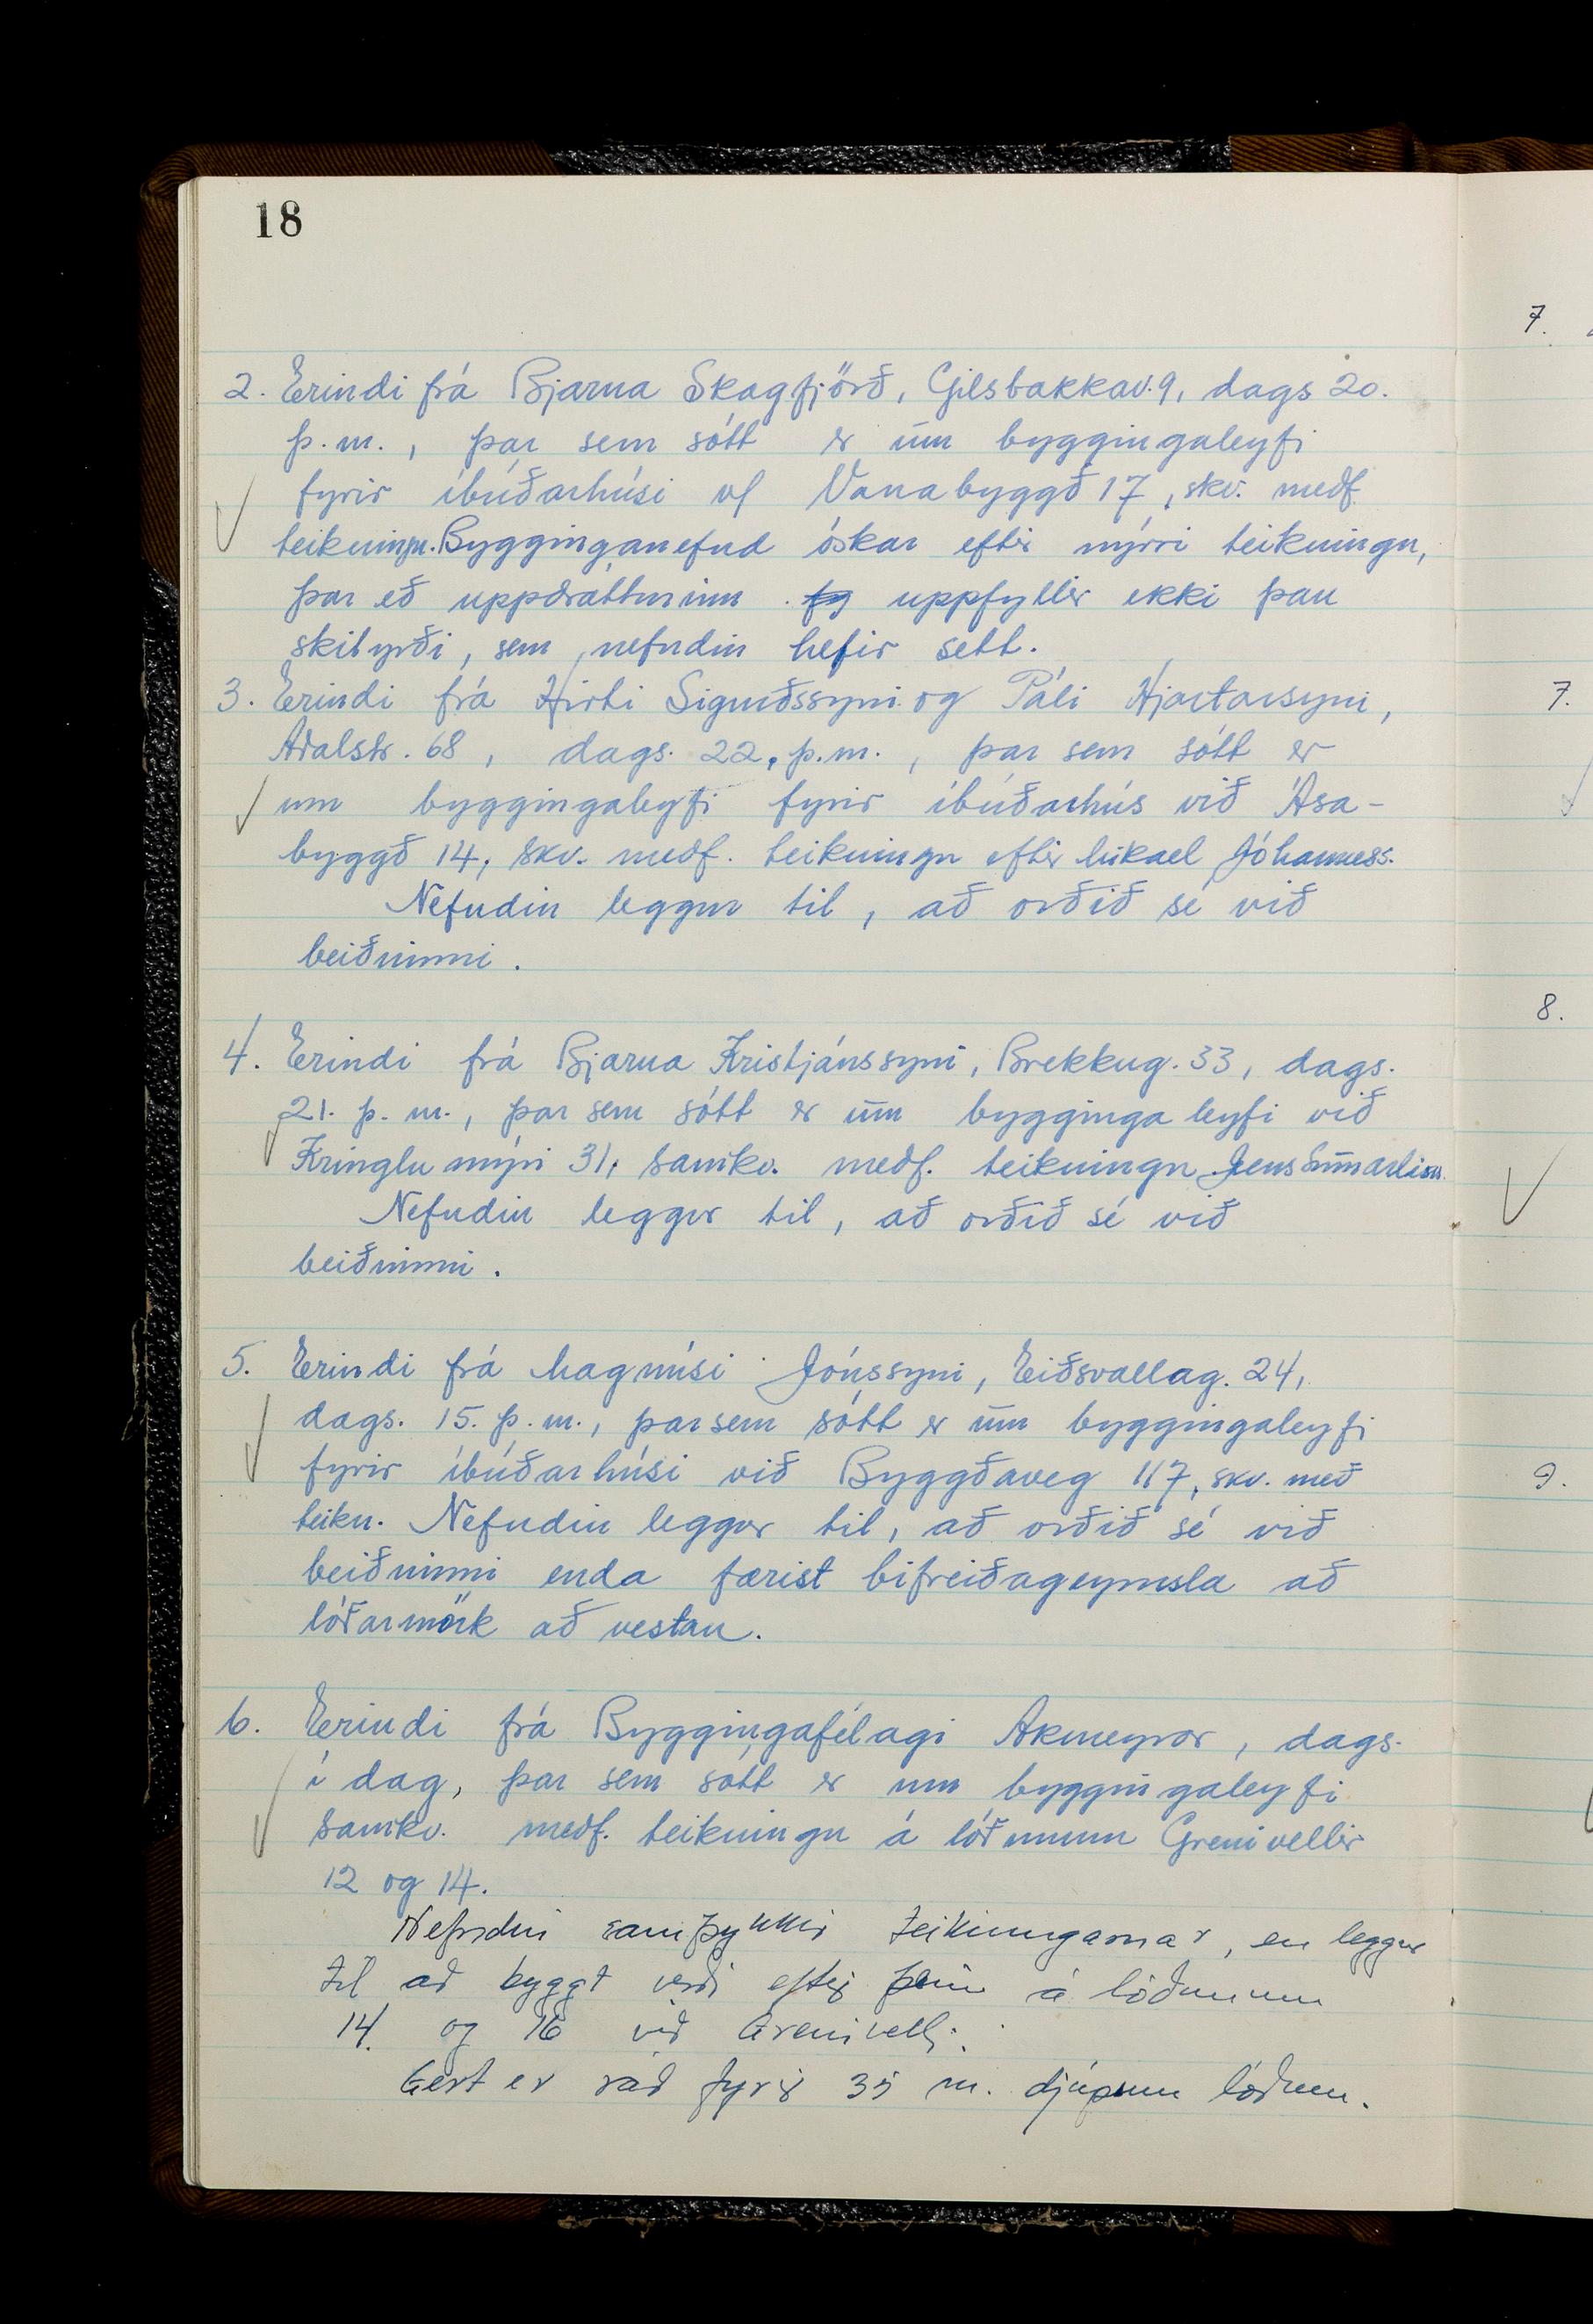 18
2. Erindi frá Bjarna Skagfjörð, Gilsbakkav. 9, dags 20.
þ.m., þar sem sótt er um byggingaleyfi
fyrir íbúðarhúsi v/ Vanabyggð 17, skv. meðf.
teikningu. Bygginganefnd óskar eftir nýrri teikningu,
þar eð uppdrátturinn uppfyllir ekki þau
skilyrði, sem nefndin hefir sett.
3. Erindi frá Hirti Sigurðssyni og Páli Hjartarsyni,
Aðalstr. 68, dags. 22. þ.m., þar sem sótt er
um byggingaleyfi fyrir íbúðarhús við Ása-
byggð 14, skv. meðf. teikningu eftir Mikael Jóhanness.
Nefndin leggur til, að orðið sé við
beiðninni.
4. Erindi frá Bjarna Kristjánssyni, Brekkug. 33, dags.
21. þ.m., þar sem sótt er um bygginga leyfi við
Kringlumýri 31, samkv. meðf. teikningu Jens
Nefndin leggur til, að orðið sé við
beiðninni.
5. Erindi frá Magnúsi Jónssyni, Eiðsvallag. 24,
dags. 15. þ.m., þar sem sótt er um byggingaleyfi
fyrir íbúðarhúsi við Byggðaveg 117, skv. með
teikn. Nefndin leggur til, að orðið sé við
beiðninni enda færist bifreiðageymsla að
lóðarmörk að vestan.
6. Erindi frá Byggingafélagi Akureyrar, dags.
í dag, þar sem sótt er um byggingaleyfi
samkv. meðf. teikningu á lóðunum Grenivellir
12 og 14.
Nefndin samþykkir teikningarnar, en leggur
til að byggt verði eftir þeim á lóðunum
14. og 16 við Grenivelli.
Gert er ráð fyrir 35 m. djúpum lóðum.
7.
7.
8.
9.